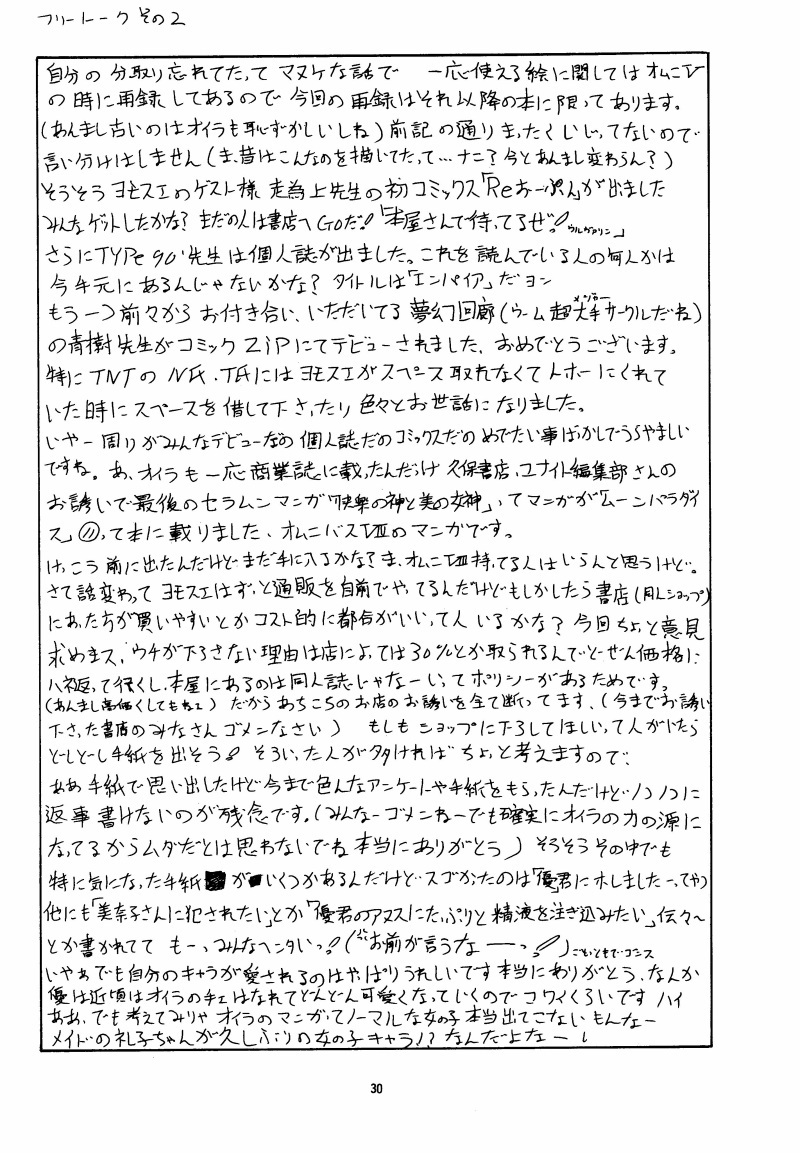 フリートーク その2
自分の分取り忘れてたってマヌケな話で 一応使える絵に関してはオムニⅣ
の時に再録してあるので今回の再録はそれ以降の本に限ってあります。
(あんまし古いのはオイラも恥ずかしいしね)前記の通りまったくいじってないので
言い分けはしません(ま、昔はこんなのを描いてたって…ナニ?今とあんまし変わらん?)
そうそうヨモスエのゲスト様 走為上先生の初コミックス「Reおーぷん」が出ました
みんなゲットしたかな? まだの人は書店へGOだ!「本屋さんで待ってるぜっ!ウルヴァリン」
さらにTYPE90'先生は個人誌が出ました。これを読んでいる人の何人かは
今手元にあるんじゃないかな? タイトルは「エンパイア」だヨン
もう一つ前々からお付き合い、いただいてる夢幻回廊(ウーム超大手サークルだね)
の青樹先生がコミックZiPにてデビューされました、おめでとうございます。
特にTNTのNF.TFにはヨモスエがスペース取れなくてトホーにくれて
いた時にスペースを借して下さったり色々とお世話になりました。
いやー周りがみんなデビューなの個人誌だのコミックスだのめでたい事ばかしでうらやましい
ですね。あ、オイラも一応商業誌に載ったんだっけ久保書店、ユナイト編集部さんの
お誘いで最後のセラムンマンガ「快楽の神と美の女神」ってマンガが「ムーンパラダイ
ス」⑪って本に載りました、オムニバスⅦのマンガです。
けっこう前に出たんだけどまだ手に入るかな?ま、オムニⅦ持ってる人はいらんと思うけど。
さて話変わってヨモスエはずっと通販を自前でやってるんだけどもしかしたら書店(同人ショップ)
にあった方が買いやすいとかコスト的に都合がいいって人いるかな? 今回ちょっと意見
求めまス、ウチが下ろさない理由は店によっては30%とか取られるんでとーぜん価格に
ハネ返って行くし、本屋にあるのは同人誌じゃなーいってポリシーがあるためです。
(あんまし高価くしてもねェ) だからあちこちのお店のお誘いを全て断ってます、(今までお誘い
下さった書店のみなさんゴメンなさい) もしもショップに下ろしてほしいって人がいたら
どしどし手紙を出そう! そういった人が多ければちょっと考えますので、
ああ手紙で思い出したけど今まで色んなアンケートや手紙をもらったんだけど
返事書けないのが残念です。(みんなーゴメンねーでも確実にオイラの力の源に
なってるからムダだとは思わないでね 本当にありがとう) そうそうその中でも
特に気になった手紙がいくつかあるんだけどスゴかったのは「優君にホしました」ってやつ
他にも「美奈子さんに犯されたい」とか「優君のアヌスにたっぷりと精液を注ぎ込みたい」伝々〜
とか書かれてて もーっみんなヘンタいっ!(お前が言うなーっ!)
いやぁでも自分のキャラが愛されるのはやっぱりうれしいです本当にありがとう、なんか
優は近頃はオイラのチェはなれてどんどん可愛くなっていくのでコワイくらいです ハイ
ああ、でも考えてみりゃオイラのマンガってノーマルな女の子本当出てこないもんなー
メイドの礼子ちゃんが久しぶりの女の子キャラ!? なんだよなー
30